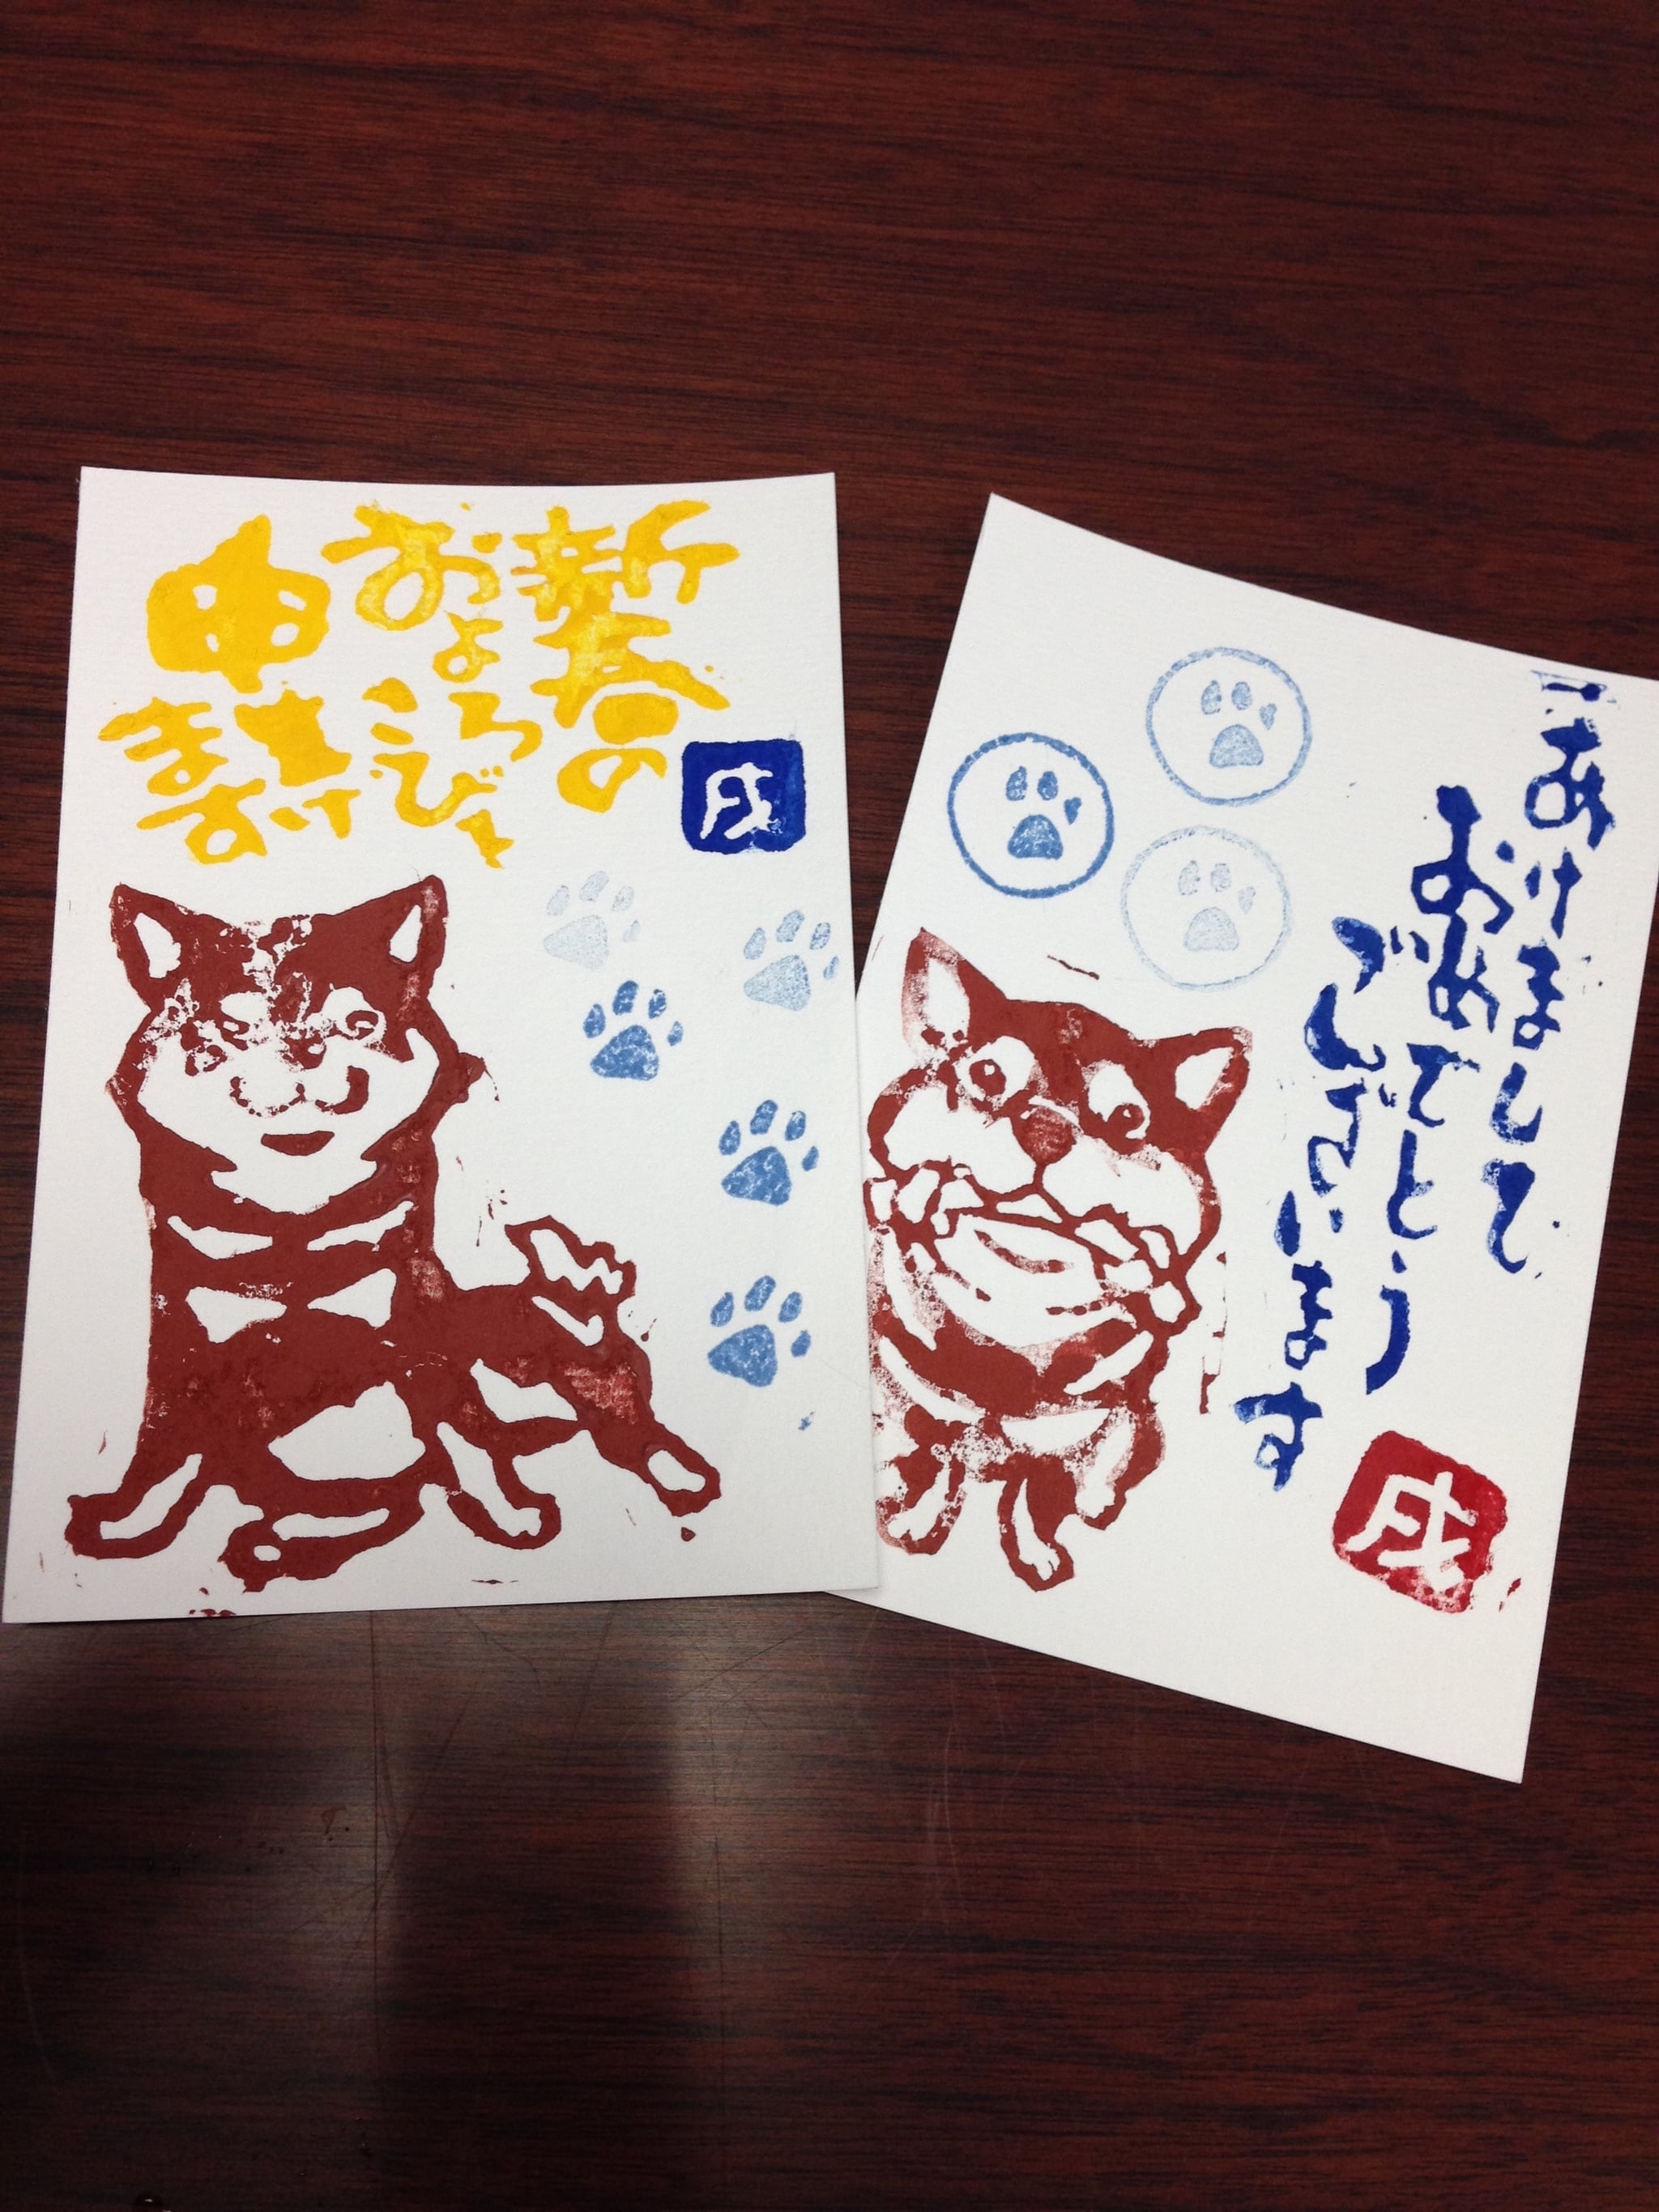 新春の
およろこびを
申上げ
ます
戌
あけまして
おめでとう
ございます
戌